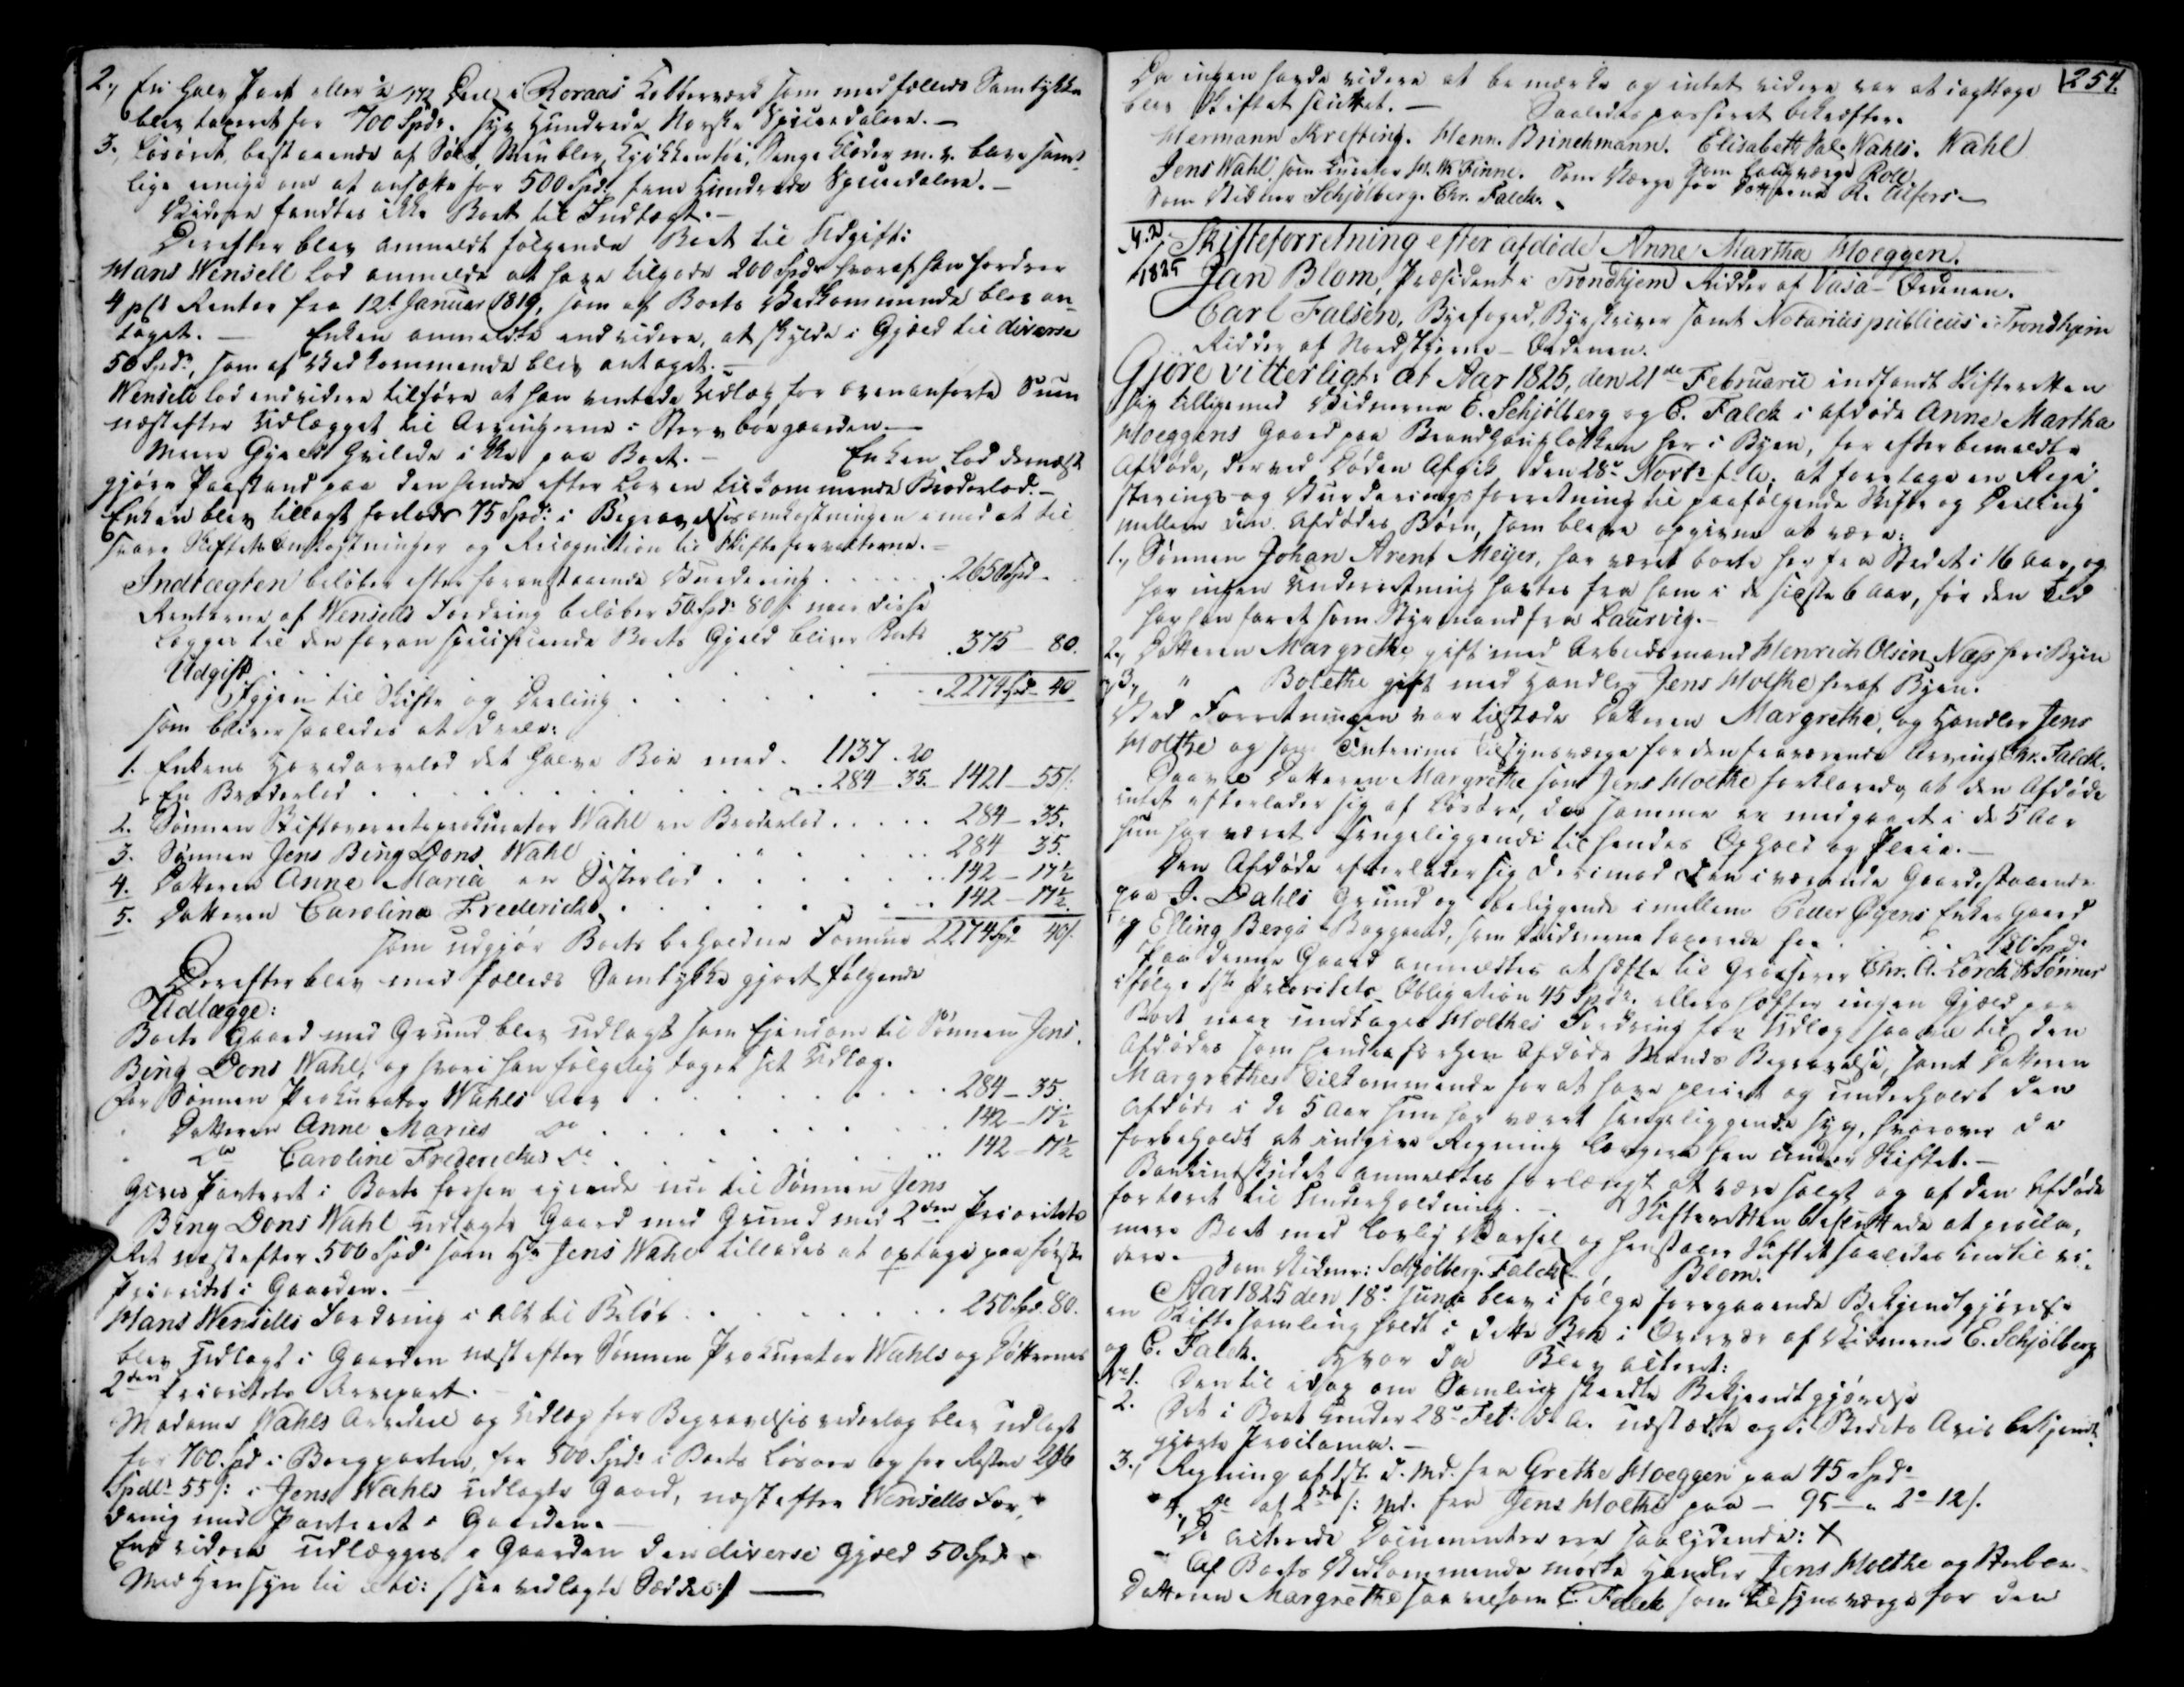 2., En halv Part eller ½/172 Deel i Roraas Kobberværk som med fælleds Samtykke
blev taxeret for 700 Spdr. syv Hundrede Norske Speciedalere. —
3., Løsöret, bestaaende af Sölv, Meubler, Kjökkentöi, Senge Klæder m. v. bare sam-
lige enige om at ansætte for 500 Spdr fem Hundrede Speciedalere. —
Videre fandtes ikke Boet til Indtægt. —
Derefter blev anmeldt følgende Boet til Udgift:
Hans Wensell lod anmelde at have tilgode 200 Spdr hvoraf han fordrer
4 pCt Renter fra 12te Januar 1819, som af Boets Vedkommende blev an-
taget. — Enken anmeldte end videre, at skylde i Gjæld til diverse
50 Spdr, som af Vedkommende blev antaget. —
Wensell lod endvidere tilføre at han ventede Udlæg for ovenanførte Sum
næst efter Udlægget til Arvingerne i Stervboegaarden. —
Mere Gjæld hvilede ikke paa Boet. — Enken lod dernæst
gjøre Paastand paa den hende efter Loven tilkommende Broderlod. —
Enken blev tillagt forlods 75 Spdr i Begravelsesomkostningen imod at til
svare Skiftets Omkostninger og Recognition til Skifteforvalterne. —
Indtægten beløber efter foranstaaende Vurdering . . . . . . 2650 Spd -
Renterne af Wensells Fordring beløber 50 Spdr 80 s. naar disse
lægges til den foran specificerede Boets Gjæld bliver Boets
Udgift . . . . . . . . . 375 — 80.
Igjen til Skifte og Deeling . . . . . . 2274 Spd 40
som bliver saaledes at deele:
1. Enkens Hovedarvelod det halve Boe med . 1137 . 20
En Broderlod . . . . . . . . 284 — 35 — 1421 — 55 s.
2. Sønnen Stiftoverretsprokurator Wahl en Broderlod . . . . . 284 — 35.
3. Sønnen Jens Bing Dons Wahl . . . . " . . . . 284 35.
4. Datteren Anne Maria en Søsterlod . . . . . . . 142 — 17½
5. Datteren Carolina Fredericke . . . . . . . . 142 — 17½.
som udgjør Boets beholdne Formue 2274 Spd 40 s.
Derefter blev med fælleds Samtykke gjort følgende
Udlægge:
Boets Gaard med Grund blev udlagt som Eiendom til Sønnen Jens
Bing Dons Wahl, og hvori han følgelig taget sit Udlæg.
For Sønnen Prokurator Wahls Arv . . . . . . . . . 284 — 35.
" Datteren Anne Maries Do . . . . . . . . . 142 — 17½
" Do Caroline Frederickes Do . . . . . . . . 142 — 17½
gives Panteret i Boets forhen eiende nu til Sønnen Jens
Bing Dons Wahl udlagte Gaard med Grund med 2den Prioritets
Ret næst efter 500 Spdr som Hr Jens Wahl tillades at optage paa første
Prioritet i Gaarden. —
Hans Wensells Fordring i Alt til Beløb . . . . . . . . . 250 Spd. 80.
blev udlagt i Gaarden næst efter Sønnen Prokurator Wahls og Döttrenes
2den Prioritets Arvepart. —
Madame Wahls Arvedeel og Udlæg for Begravelsesvederlag blev udlagt
for 700 Spd i Bergparten, for 500 Spdr i Boets Løsøre og for Resten 296
Spdlr 55 s: i Jens Wahls udlagte Gaard, næst efter Wensells For-
dring med Panteret i Gaarden. —
End videre udlægges i Gaarden den diverse Gjæld 50 Spdr —
Med Hensyn til etc: (see vedlagte Seddel:) —
254.
Da ingen havde videre at bemærke og intet videre var at iagttage
blev Skiftet sluttet. — Saaledes passeret bekræfter.
Hermann Krefting. Henn. Brinchmann. Elisabeth Sal. Wahls. Wahl
Jens Wahl. som Curator H. M. Finne. Som Værge for Döttrene R. Ulfers. —
som Laugværge Roll
som Vidner Schjölberg. Chr. Falck.
N. 2
1825
Skifteforretning efter afdöde Anne Martha Hoeggen.
Jan Blom, Præsident i Trondhjem Ridder af Vasa-Ordenen.
Carl Falsen, Byefoged, Byeskriver samt Notarius publicus i Trondhjem
Ridder af Nordstjerne-Ordenen.
Gjöre vitterligt: at Aar 1825, den 21de Februarii indfandt Skifteretten
sig tilligemed Vidnerne E. Schjölberg og C. Falck i afdöde Anne Martha
Hoeggens Gaard paa Brandhaugløkken her i Byen, for efterbemeldte
Afdöde, der ved Döden Afgik den 28de Novbr f. A. at foretage en Regi-
sterings- og Vurderingsforretning til paafølgende Skifte og Deeling
mellem den Afdödes Børn, som bleve opgivne at være:
1., Sønnen Johan Arent Meyer, har været borte her fra Stedet i 16 Aar, og
har ingen Underretning havtes fra ham i de sidste 6 Aar, før den Tid
har han faret som Styrmand fra Laurvig. —
2., Datteren Margrethe gift med Arbeidsmand Henrich Olsen Næss her i Byen
3., " Bolethe gift med Handler Jens Holthe her af Byen.
Ved Forretningen var tilstæde Datteren Margrethe, og Handler Jens
Holthe og som Interims Tilsynsværge for den fraværende Arving Chr. Falck.
Saavel Datteren Margrethe som Jens Holthe forklarede at den Afdöde
intet efterlader sig af Løsøre, da samme er medgaaet i de 5 Aar
hun har været sengeliggende til hendes Ophold og Pleie. —
Den Afdöde efterlader sig derimod den iværende Gaard staaende
paa J. Dahls Grund og beliggende imellem Peder Öyens Enkes Gaard
og Esling Bergs Baggaard, som Vidnerne taxerede for . . . . . 120 Spdr
Paa denne Gaard anmældtes at hæfte til Grosserer Chr. A. Lorck & Sønner
ifølge 1ste Prioritets Obligation 45 Spdr. ellers hæfter ingen Gjæld paa
Boet naar undtages Holthes Fordring for Udlæg saavel til den
Afdödes som hendes forhen Afdöde Mands Begravelse, samt Datteren
Margrethes Tilkommende for at have pleiet og underholdt den
Afdöde i de 5 Aar hun har været sengeliggende syg, hvorover de
forbeholdt at indgive Regning længere hen under Skiftet. —
Bankindskudet anmeldtes forlængst at være solgt og af den Afdöde
fortæret til Underholdning. — Skifteretten besluttede at procla-
mere Boet med lovlig Varsel og henstaaer Skiftet saaledes indtil vi-
dere. Som Vidner: Schjölberg. Falck. Blom.
Aar 1825 den 18de Juni blev i følge foregaaende Bekjendtgjørelse
en Skiftesamling holdt i dette Boe i Overvær af Vidnerne E. Schjölberg
og C. Falck. Hvor da Blev acteret:
No 1. Den til idag om Samling skeedte Bekjendtgjørelse
2. Det i Boet under 28de Feb. d. A. udstædte og i Stedets Avis bekjendt-
gjorte Proclama. —
3., Regning af 1ste d. Md. fra Grethe Hoeggen paa 45 Spdr
4., Do af 2den s. Md. fra Jens Holthe paa — 95 — 2 12 s.
De acterede Documenter ere saalydende: X
Af Boets Vedkommende mødte Handler Jens Holthe og Sterboe-
datteren Margrethe saavelsom C. Falck som Tilsynsværge for den